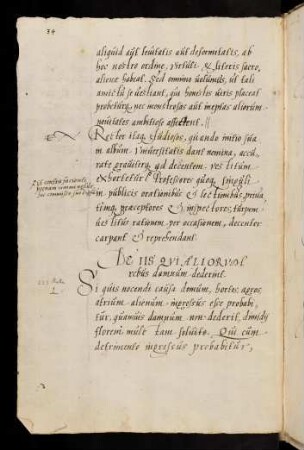 34
aliquid aut leuitatis aut deformitatis, ab
hoc nostro ordine, virtuti & literis sacro,
alieni habeat. Sed omnino uelimus, ut tali
amictu se uestiant, qui honestis uiris placeat
probeturq; nec monstrosas aut ineptas aliorum
nouitates ambitiose affectent.
Rector itaq; studiosos, quando initio sua in
album Vniuersitatis dant nomina, accu,
rate grauiterq; ad decentem uestitum
exhortetur. Professores quoq; singuli
in publicis orationibus & lectionibus, priua
timq; praeceptores & inspectores, turpem
uestitus rationem per occasionem, decenter
carpant & reprehendant.
DE IIS QVI ALIORVM
rebus damnum dederint.
Si quis nocendi causa domum, hortos, agros,
atrium alienum ingressus esse probabi,
tur, quamuis damnum non dederit, dimidij
floreni mulctam soluito. Qui cum
detrimento ingressus probabitur,